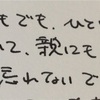 もでも、ひと
て、親にも
忘れないで